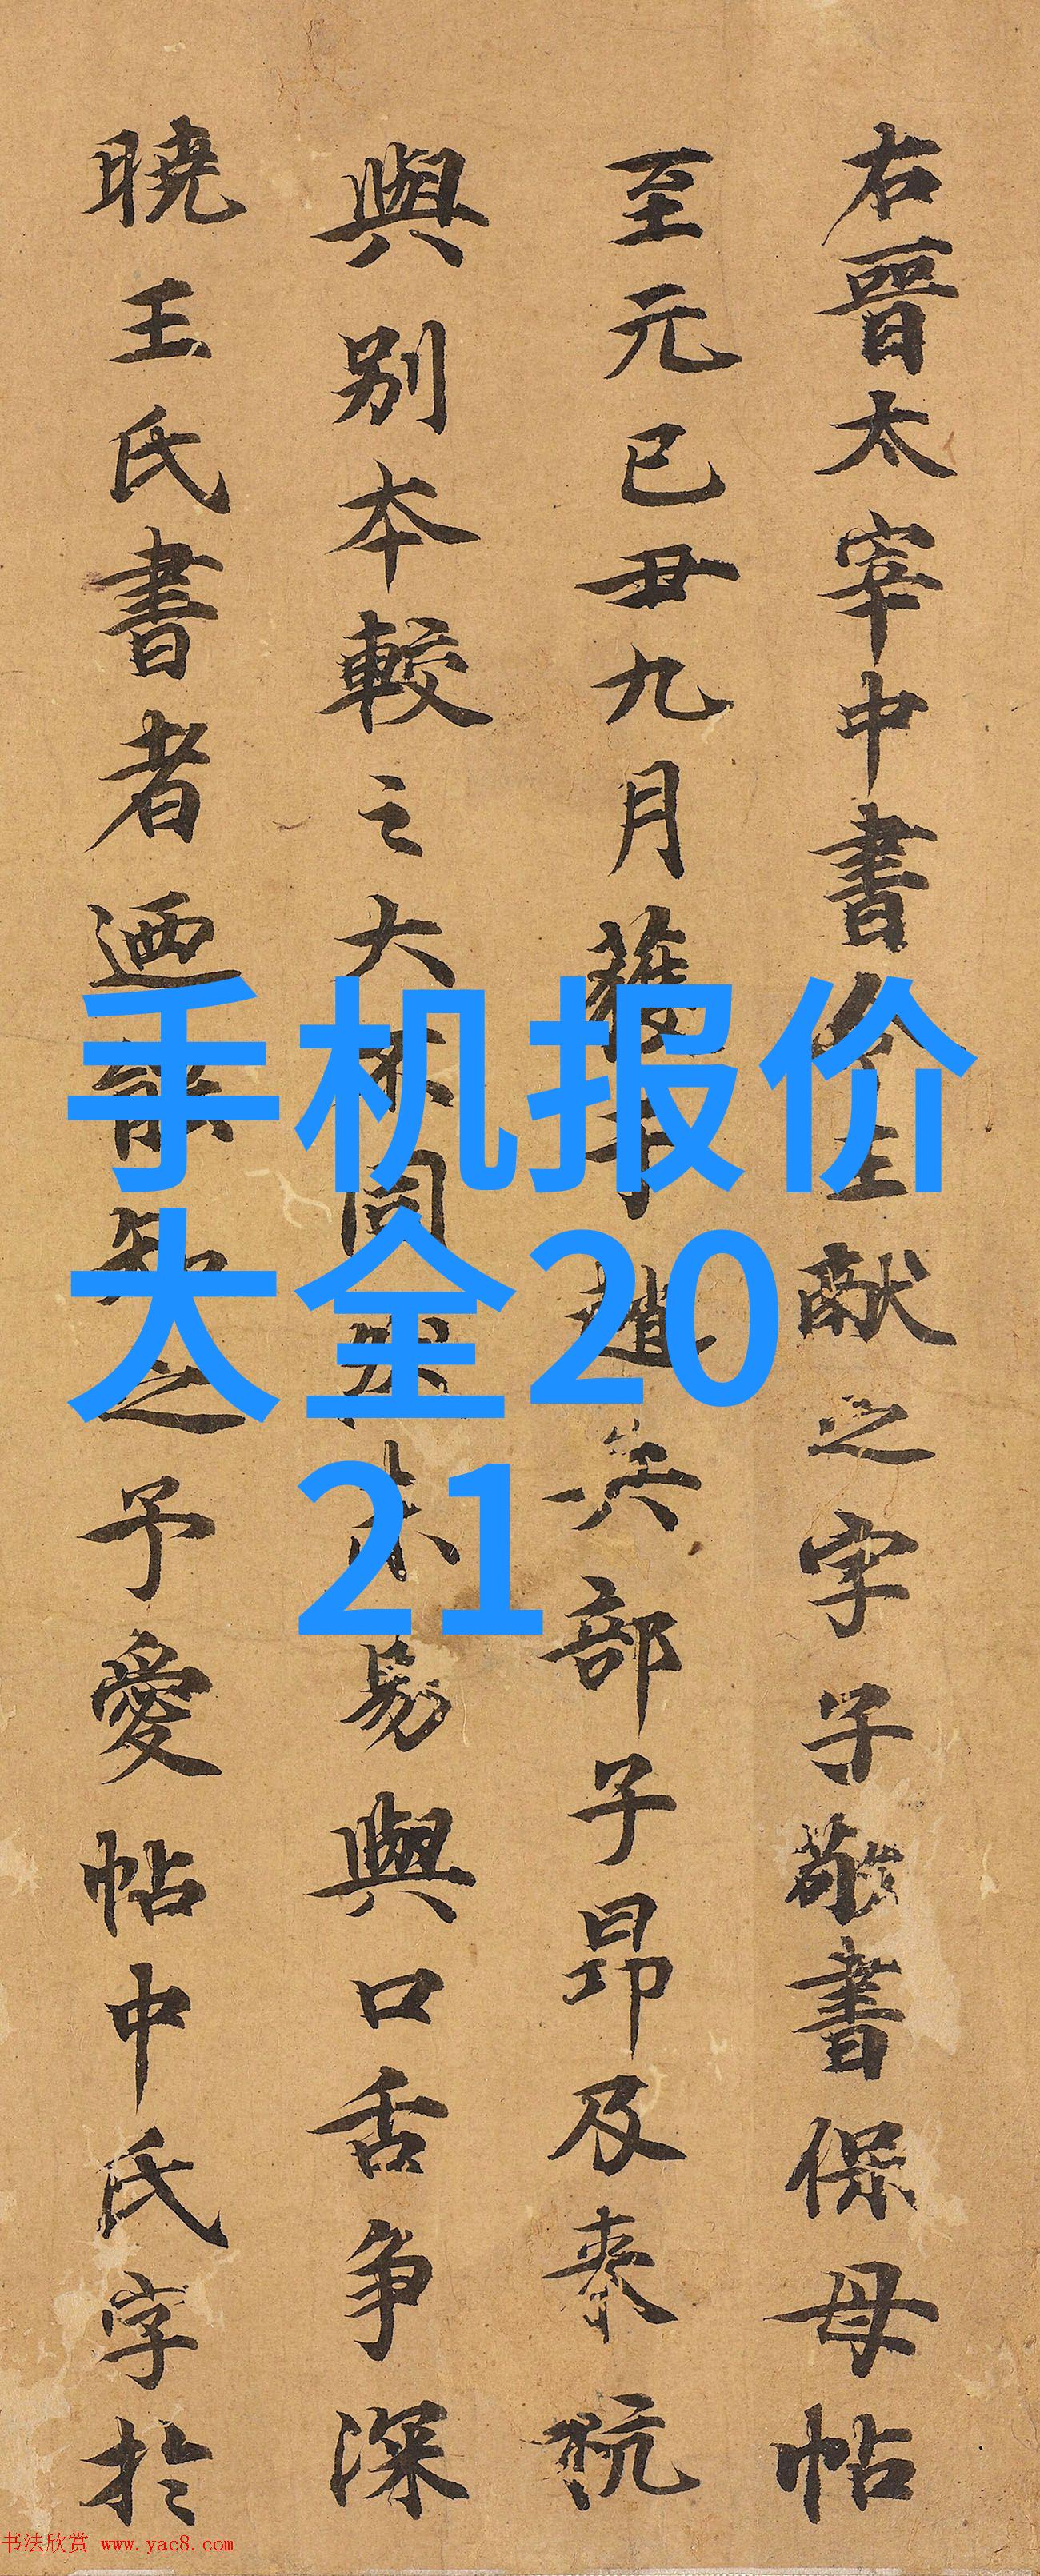 右晉太宰中書令王獻之字子敬書保母帖
至元己丑九月獲于趙兵部子昂及來杭
與别本較之大不同然未易與口舌争深
曉王氏書者迺能知之予愛帖中氏字於
手机报价
大全20
21
书法欣赏 www.yac8.com